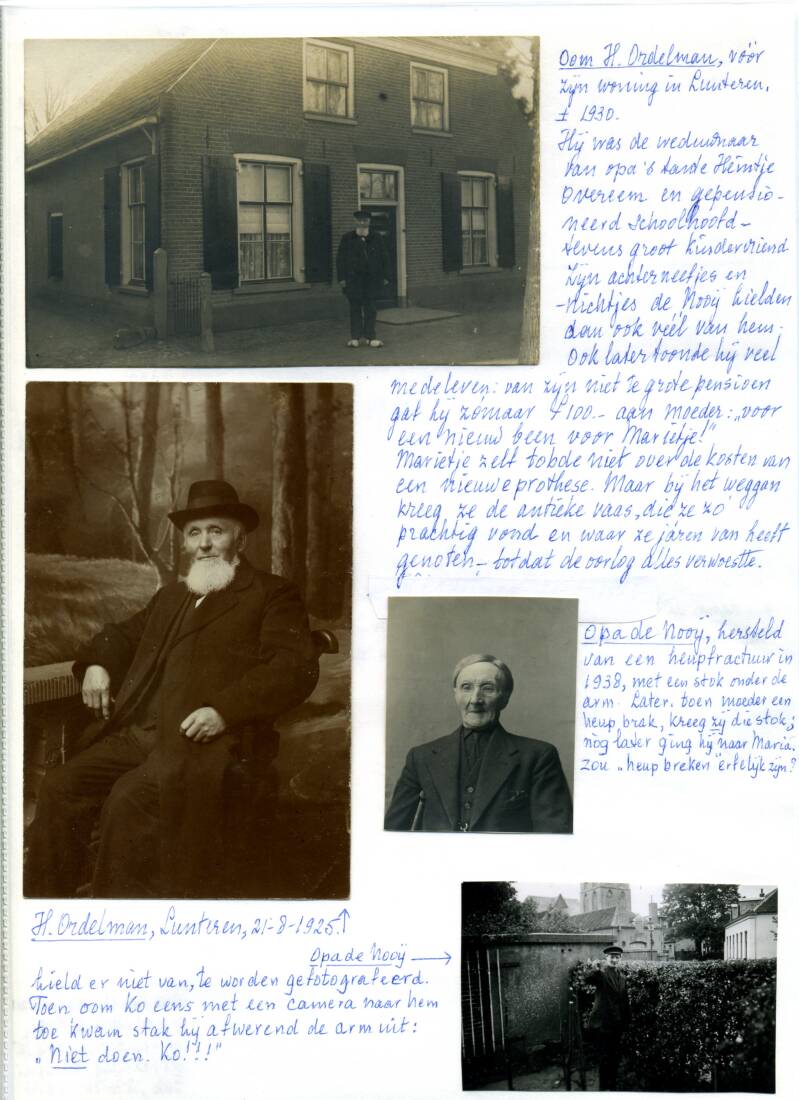 Oom H. Ordelman, vóór
zijn woning in Lunteren,
± 1930.
Hij was de weduwnaar
van opa's tante Heintje
Overeem en gepensio-
neerd schoolhoofd-
tevens groot kindervriend
Zijn achterneefjes en
-nichtjes de Nooij hielden
dan ook véél van hem.
Ook later toonde hij veel
medeleven: van zijn niet te grote pensioen
gaf hij zómaar ƒ100.- aan moeder: „voor
een nieuw been voor Marietje!"
Marietje zelf tobde niet over de kosten van
een nieuwe prothese. Maar bij het weggaan
kreeg ze de antieke vaas, die ze zo
prachtig vond en waar ze járen van heeft
genoten, totdat de oorlog alles verwoestte.
Opa de Nooij, hersteld
van een heupfractuur in
1938, met een stok onder de
arm. Later, toen moeder een
heup brak, kreeg zij die stok;
nòg later ging hij naar Maria.
zou „heup breken" erfelijk zijn?
H. Ordelman, Lunteren, 21-8-1925 ↑
Opa de Nooij →
hield er niet van, te worden gefotografeerd.
Toen oom Ko eens met een camera naar hem
toe kwam stak hij afwerend de arm uit:
„Niet doen. Ko!!!"